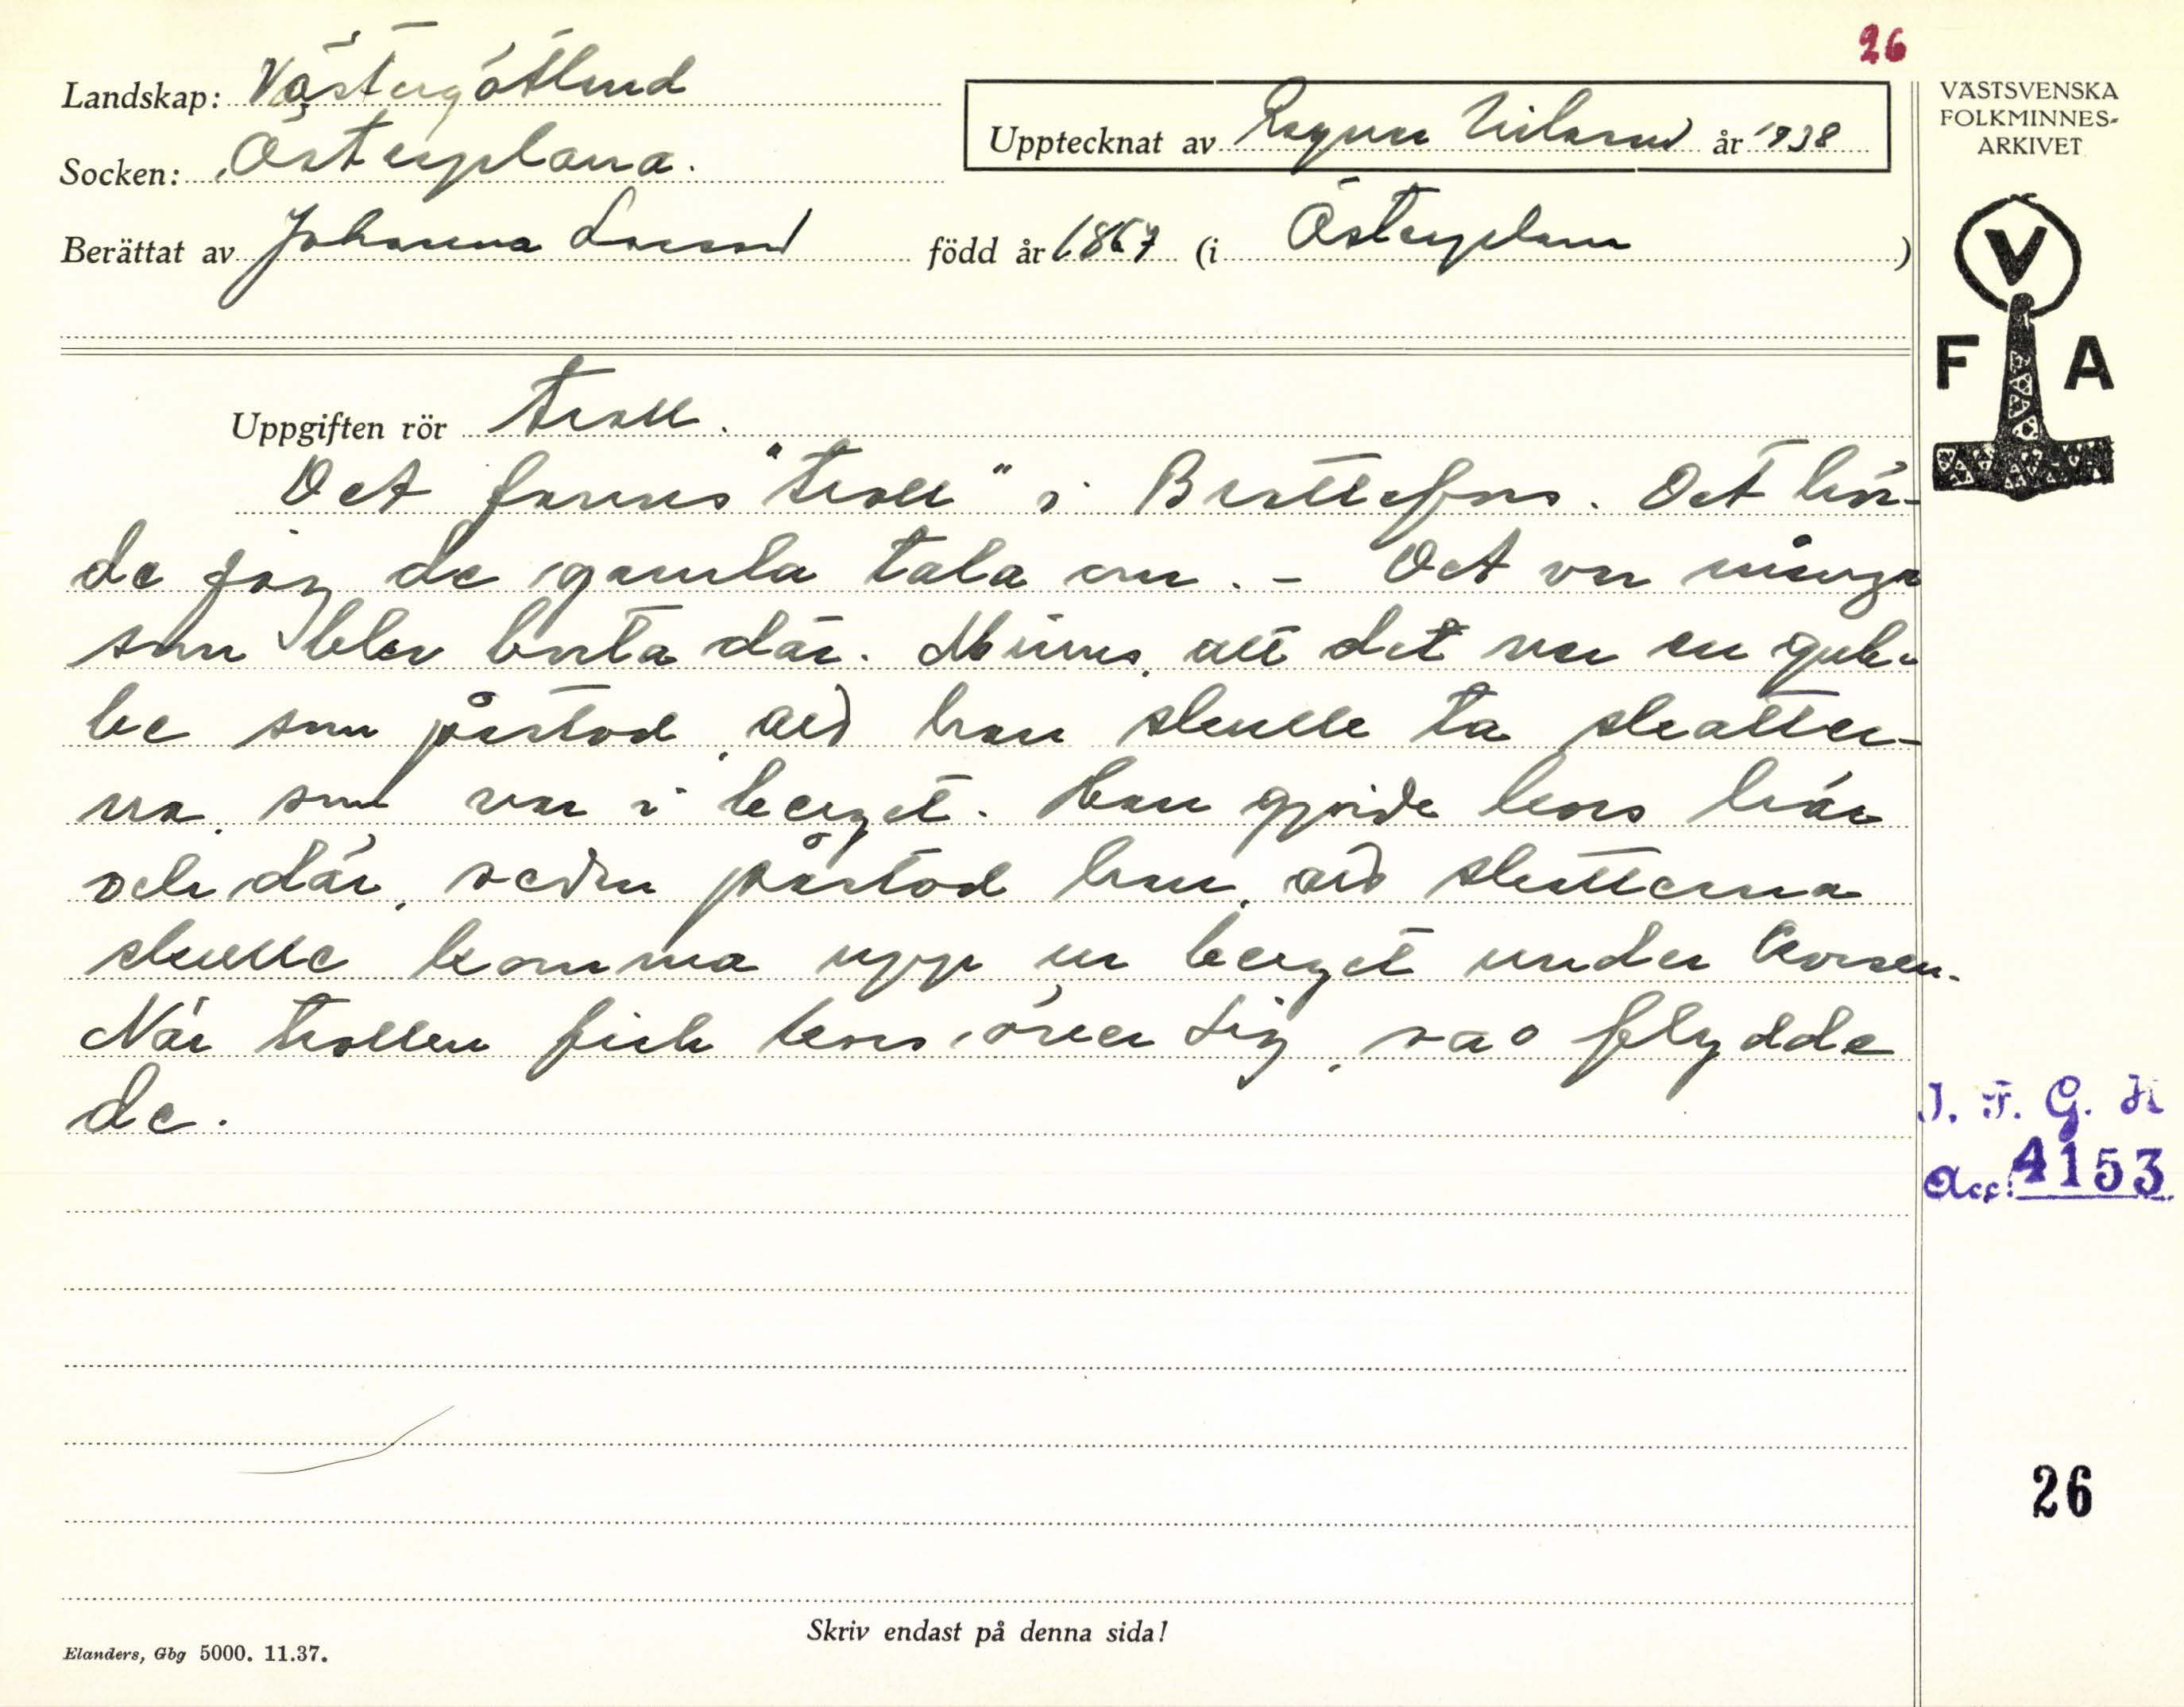 26
Landskap: Västergötland
Socken: Österplana.
Upptecknat av Ragnar Nilsson år 1938
Berättat av Johanna Larsson född år 1867 (i Österplana)
VÄSTSVENSKA
FOLKMINNES-
ARKIVET
V
F A
Uppgiften rör troll.
Det fanns "troll" i Brattefors. Det hör-
de jag de gamla tala om. - Det var många
som blev borta där. Minns, att det var en gub-
be som påstod, att han skulle ta skatter-
na, som var i berget. Han gjorde kors här
och där, sedan påstod han, att skatterna
skulle komma upp ur berget under korsen.
När trollen fick kors över sig, så flydde
de.
I. F. G. H
Acc. 4153
26
Skriv endast på denna sida!
Elanders, Gbg 5000. 11.37.